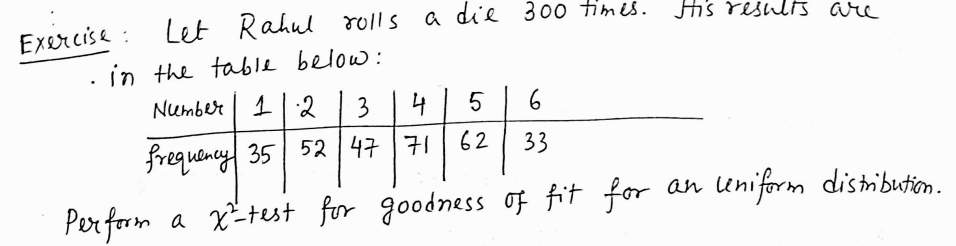 Exercise : Let Rahul rolls a die 300 times. His results are
in the table below :
Number 1 2 3 4 5 6
frequency 35 52 47 71 62 33
Perform a χ²-test for goodness of fit for an uniform distribution.